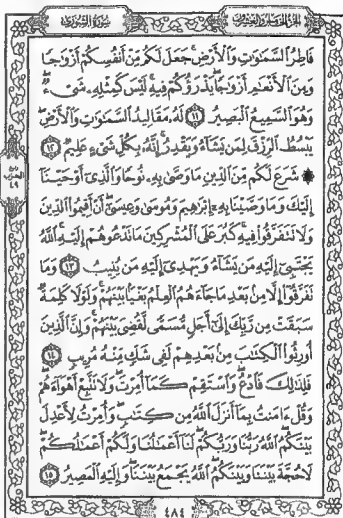 الجزء الخامس والعشرون
سورة الشورى
فَاطِرُ السَّمَٰوَٰتِ وَالْأَرْضِ جَعَلَ لَكُم مِّنْ أَنفُسِكُمْ أَزْوَٰجًا
وَمِنَ الْأَنْعَٰمِ أَزْوَٰجًا يَذْرَؤُكُمْ فِيهِ لَيْسَ كَمِثْلِهِ شَىْءٌ
وَهُوَ السَّمِيعُ الْبَصِيرُ ١١ لَهُ مَقَالِيدُ السَّمَٰوَٰتِ وَالْأَرْضِ
يَبْسُطُ الرِّزْقَ لِمَن يَشَآءُ وَيَقْدِرُ إِنَّهُ بِكُلِّ شَىْءٍ عَلِيمٌ ١٢
۞ شَرَعَ لَكُم مِّنَ الدِّينِ مَا وَصَّىٰ بِهِ نُوحًا وَالَّذِى أَوْحَيْنَآ
إِلَيْكَ وَمَا وَصَّيْنَا بِهِ إِبْرَٰهِيمَ وَمُوسَىٰ وَعِيسَىٰ أَنْ أَقِيمُوا الدِّينَ
وَلَا تَتَفَرَّقُوا فِيهِ كَبُرَ عَلَى الْمُشْرِكِينَ مَا تَدْعُوهُمْ إِلَيْهِ اللَّهُ
يَجْتَبِىٓ إِلَيْهِ مَن يَشَآءُ وَيَهْدِىٓ إِلَيْهِ مَن يُنِيبُ ١٣ وَمَا
تَفَرَّقُوٓا إِلَّا مِن بَعْدِ مَا جَآءَهُمُ الْعِلْمُ بَغْيًا بَيْنَهُمْ وَلَوْلَا كَلِمَةٌ
سَبَقَتْ مِن رَّبِّكَ إِلَىٰٓ أَجَلٍ مُّسَمًّى لَّقُضِىَ بَيْنَهُمْ وَإِنَّ الَّذِينَ
أُورِثُوا الْكِتَٰبَ مِن بَعْدِهِمْ لَفِى شَكٍّ مِّنْهُ مُرِيبٍ ١٤
فَلِذَٰلِكَ فَادْعُ وَاسْتَقِمْ كَمَآ أُمِرْتَ وَلَا تَتَّبِعْ أَهْوَآءَهُمْ
وَقُلْ ءَامَنتُ بِمَآ أَنزَلَ اللَّهُ مِن كِتَٰبٍ وَأُمِرْتُ لِأَعْدِلَ
بَيْنَكُمُ اللَّهُ رَبُّنَا وَرَبُّكُمْ لَنَآ أَعْمَٰلُنَا وَلَكُمْ أَعْمَٰلُكُمْ
لَا حُجَّةَ بَيْنَنَا وَبَيْنَكُمُ اللَّهُ يَجْمَعُ بَيْنَنَا وَإِلَيْهِ الْمَصِيرُ ١٥
الحزب
٤٩
٤٨٤